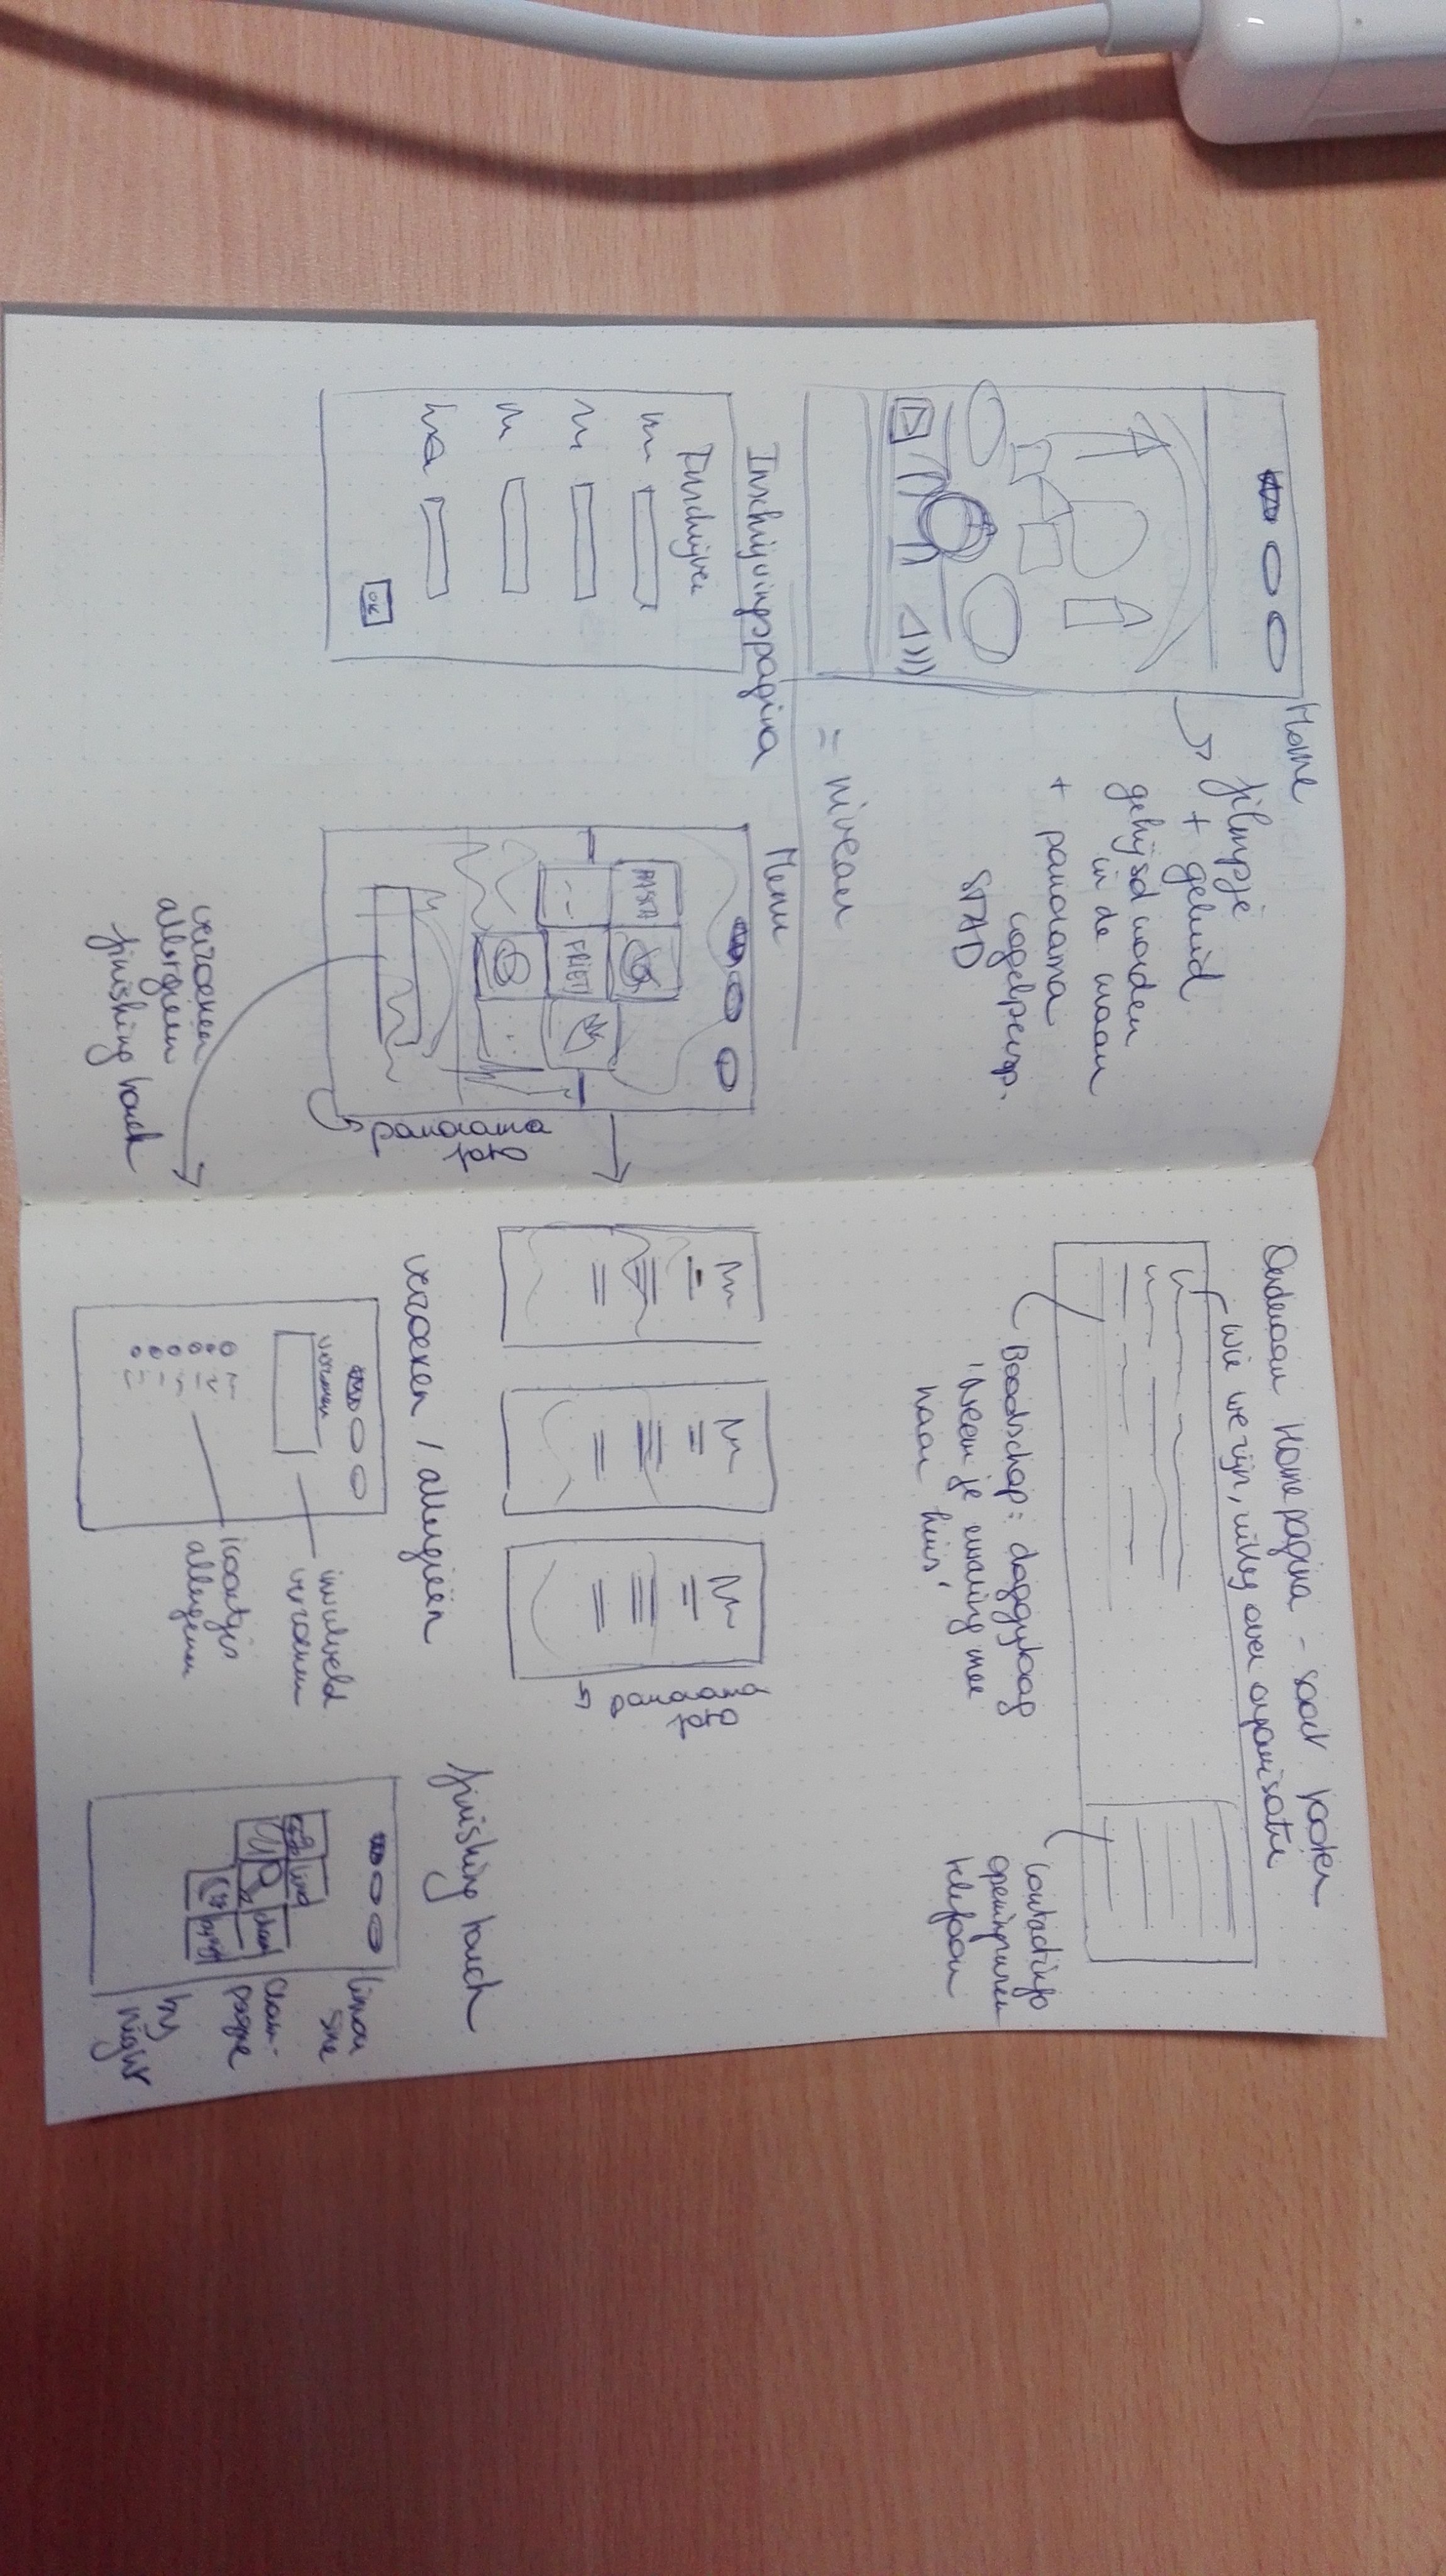 Home
filmpje
+ geluid
gehijsd worden
in de waan
+ panorama
vogelpersp.
STAD
= niveau
Inschrijvingspagina
Inschrijven
OK
Menu
PASTA
FRIET
panorama
foto
verzoeken
allergieen
finishing touch
Onderaan Homepagina - soort footer
Wie we zijn, uitleg over organisatie
Boodschap: doggybag
'Neem je ervaring mee
naar huis'
contactinfo
openingsuren
telefoon
panorama
foto
verzoeken / allergieën
verzoeken
invulveld
verzoeken
icoontjes
allergenen
finishing touch
limou
sine
cham-
pagne
by
night